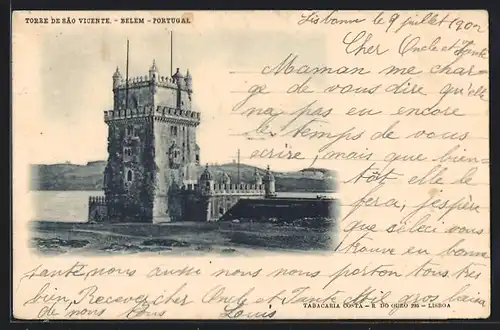 TORRE DE SÃO VICENTE. - BELEM - PORTUGAL
Lisbonne le 9 juillet 1902
Cher Oncle et Tante
Maman me char-
ge de vous dire qu'elle
na pas eu encore
le temps de vous
ecrire, mais que bien-
tôt elle le
fera, j'espère
que celeci vous
trouve en bonne
santé nous aussi nous nous porton tous très
bien, Recever cher Oncle et Tante Mil gros bais
de nous tous
Louis
TABACARIA COSTA - R. DO OURO 295 - LISBOA